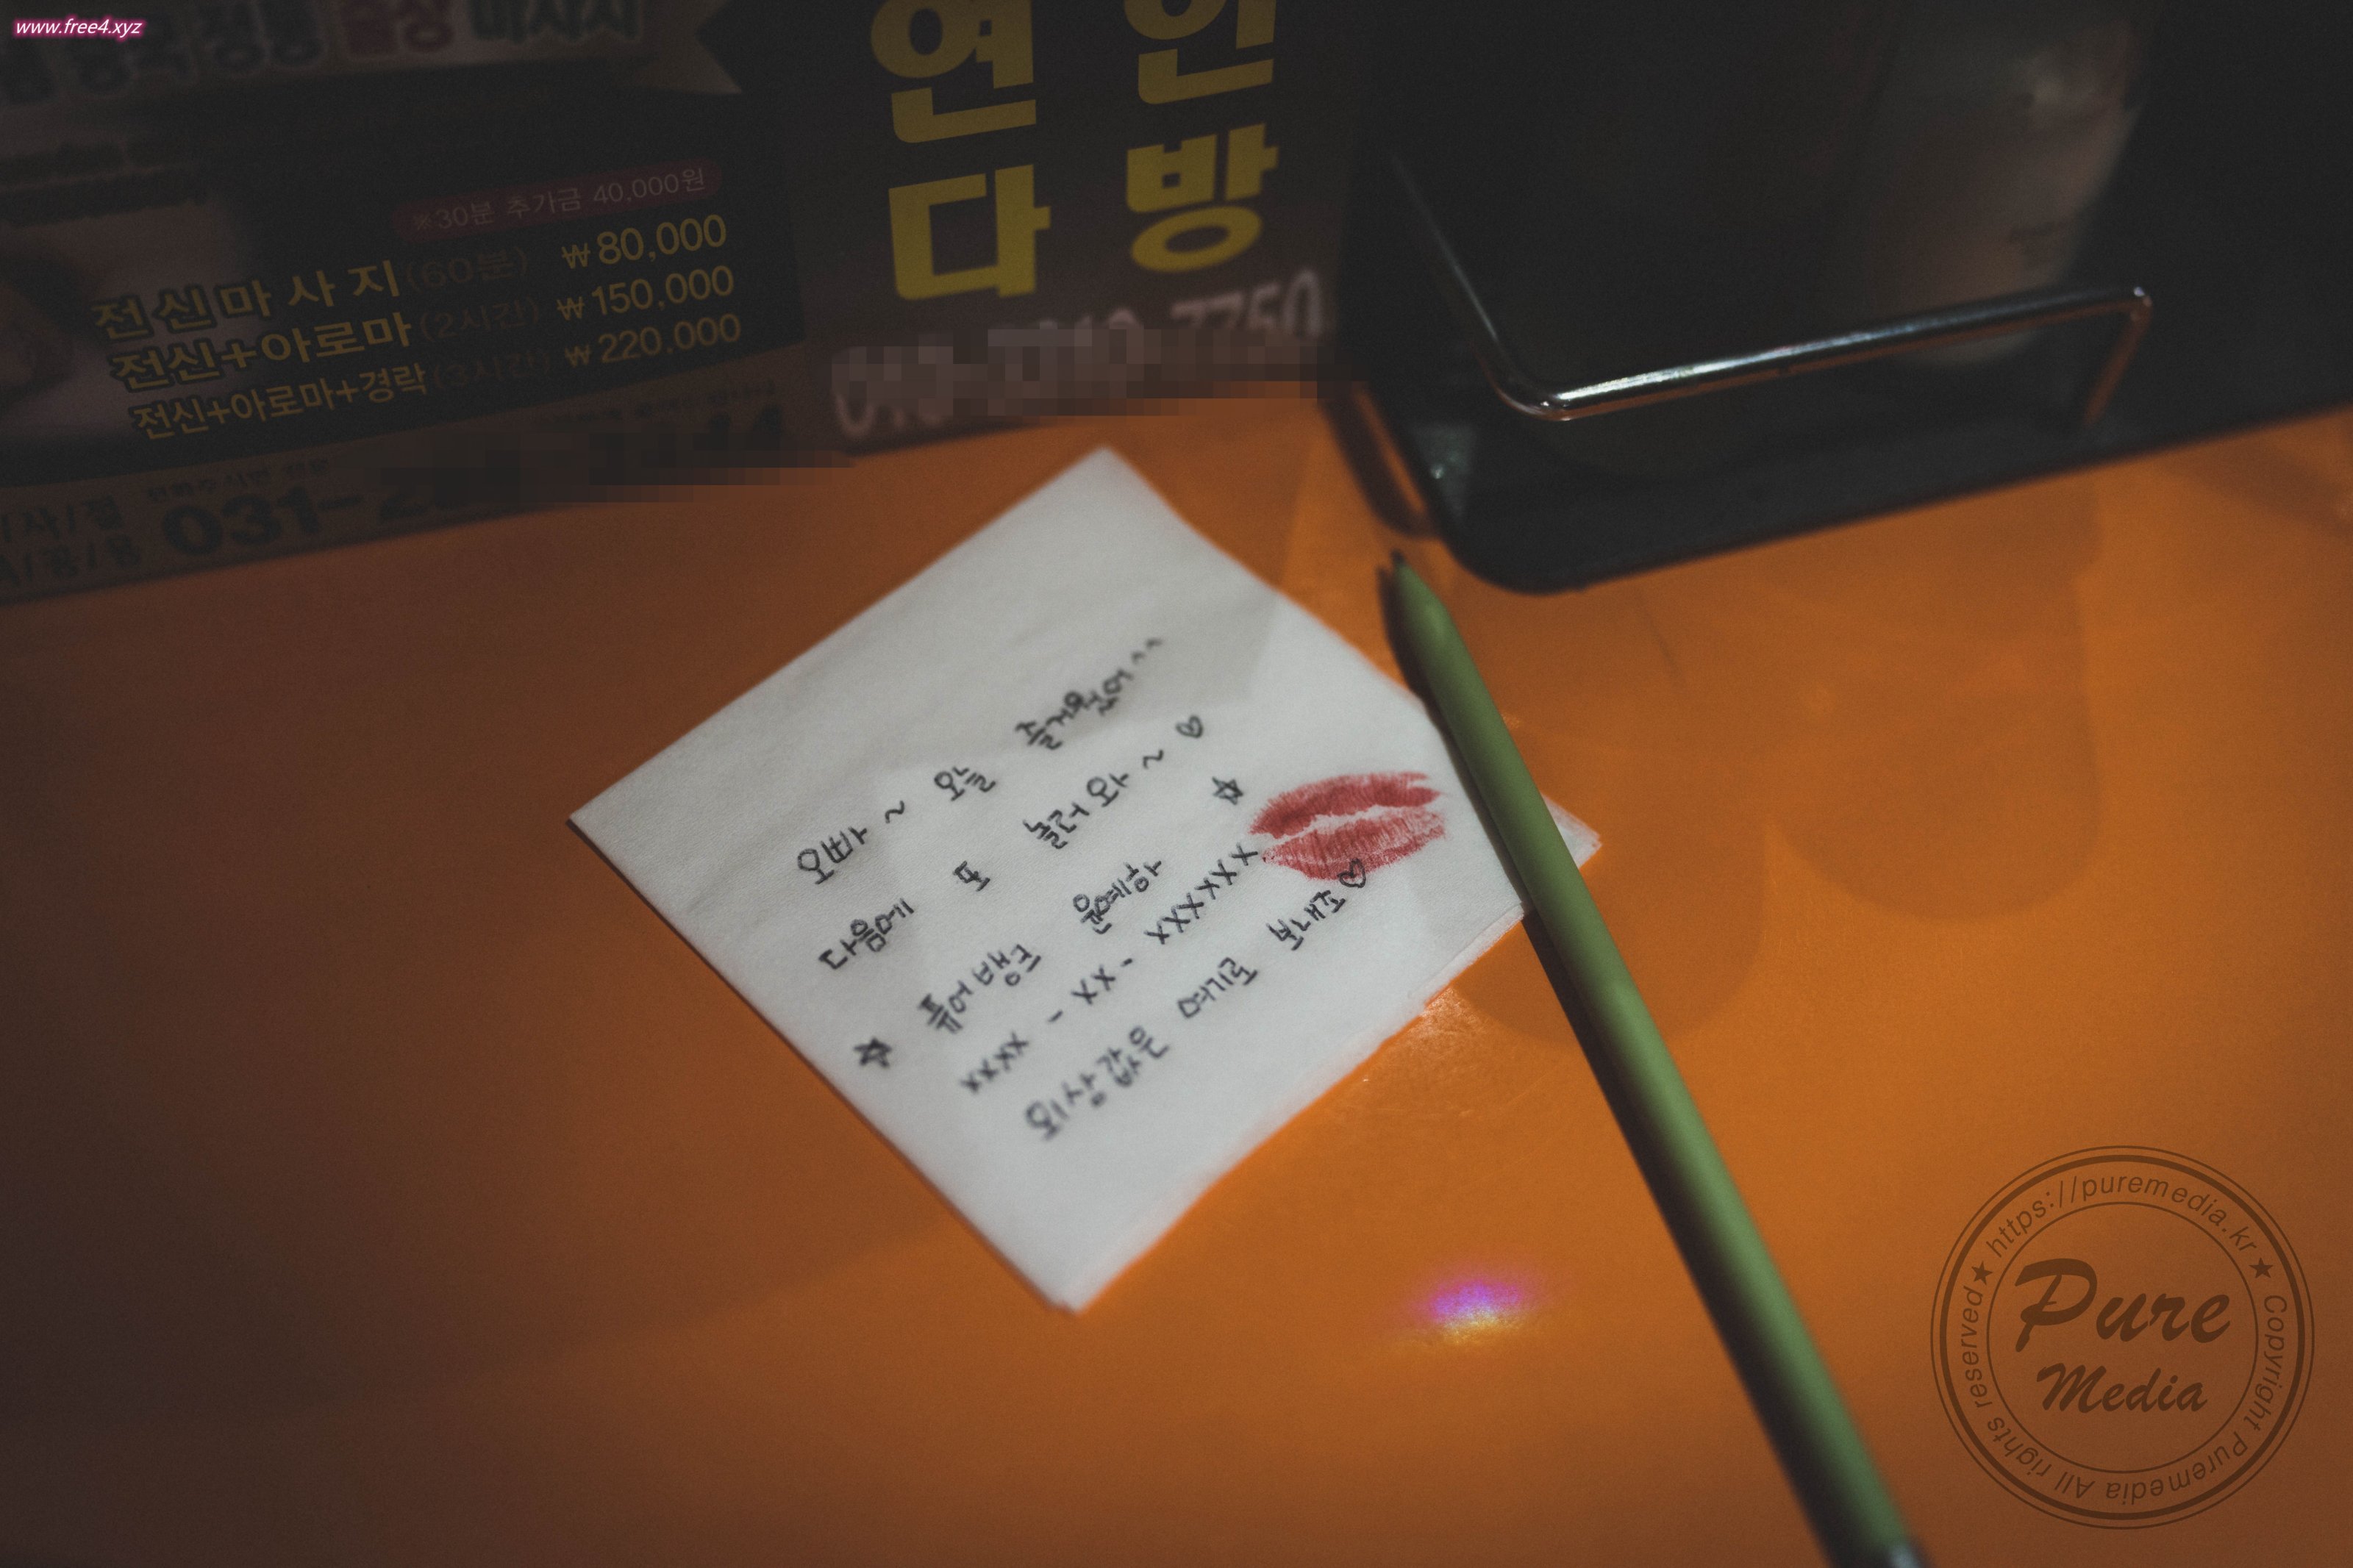 www.free4.xyz
연인
다방
※30분 추가금 40,000원
전신마사지(60분) ₩80,000
전신+아로마(2시간) ₩150,000
전신+아로마+경락(3시간) ₩220,000
031-2
오빠~ 오늘 즐거웠어^^
다음에 또 놀러와~♡
☆ 퓨어뱅크 윤예하 ☆
xxxx-xx-xxxxxx
외상값은 여기로 보내죠♡
Pure
Media
https://puremedia.kr ★ Copyright Puremedia All rights reserved ★